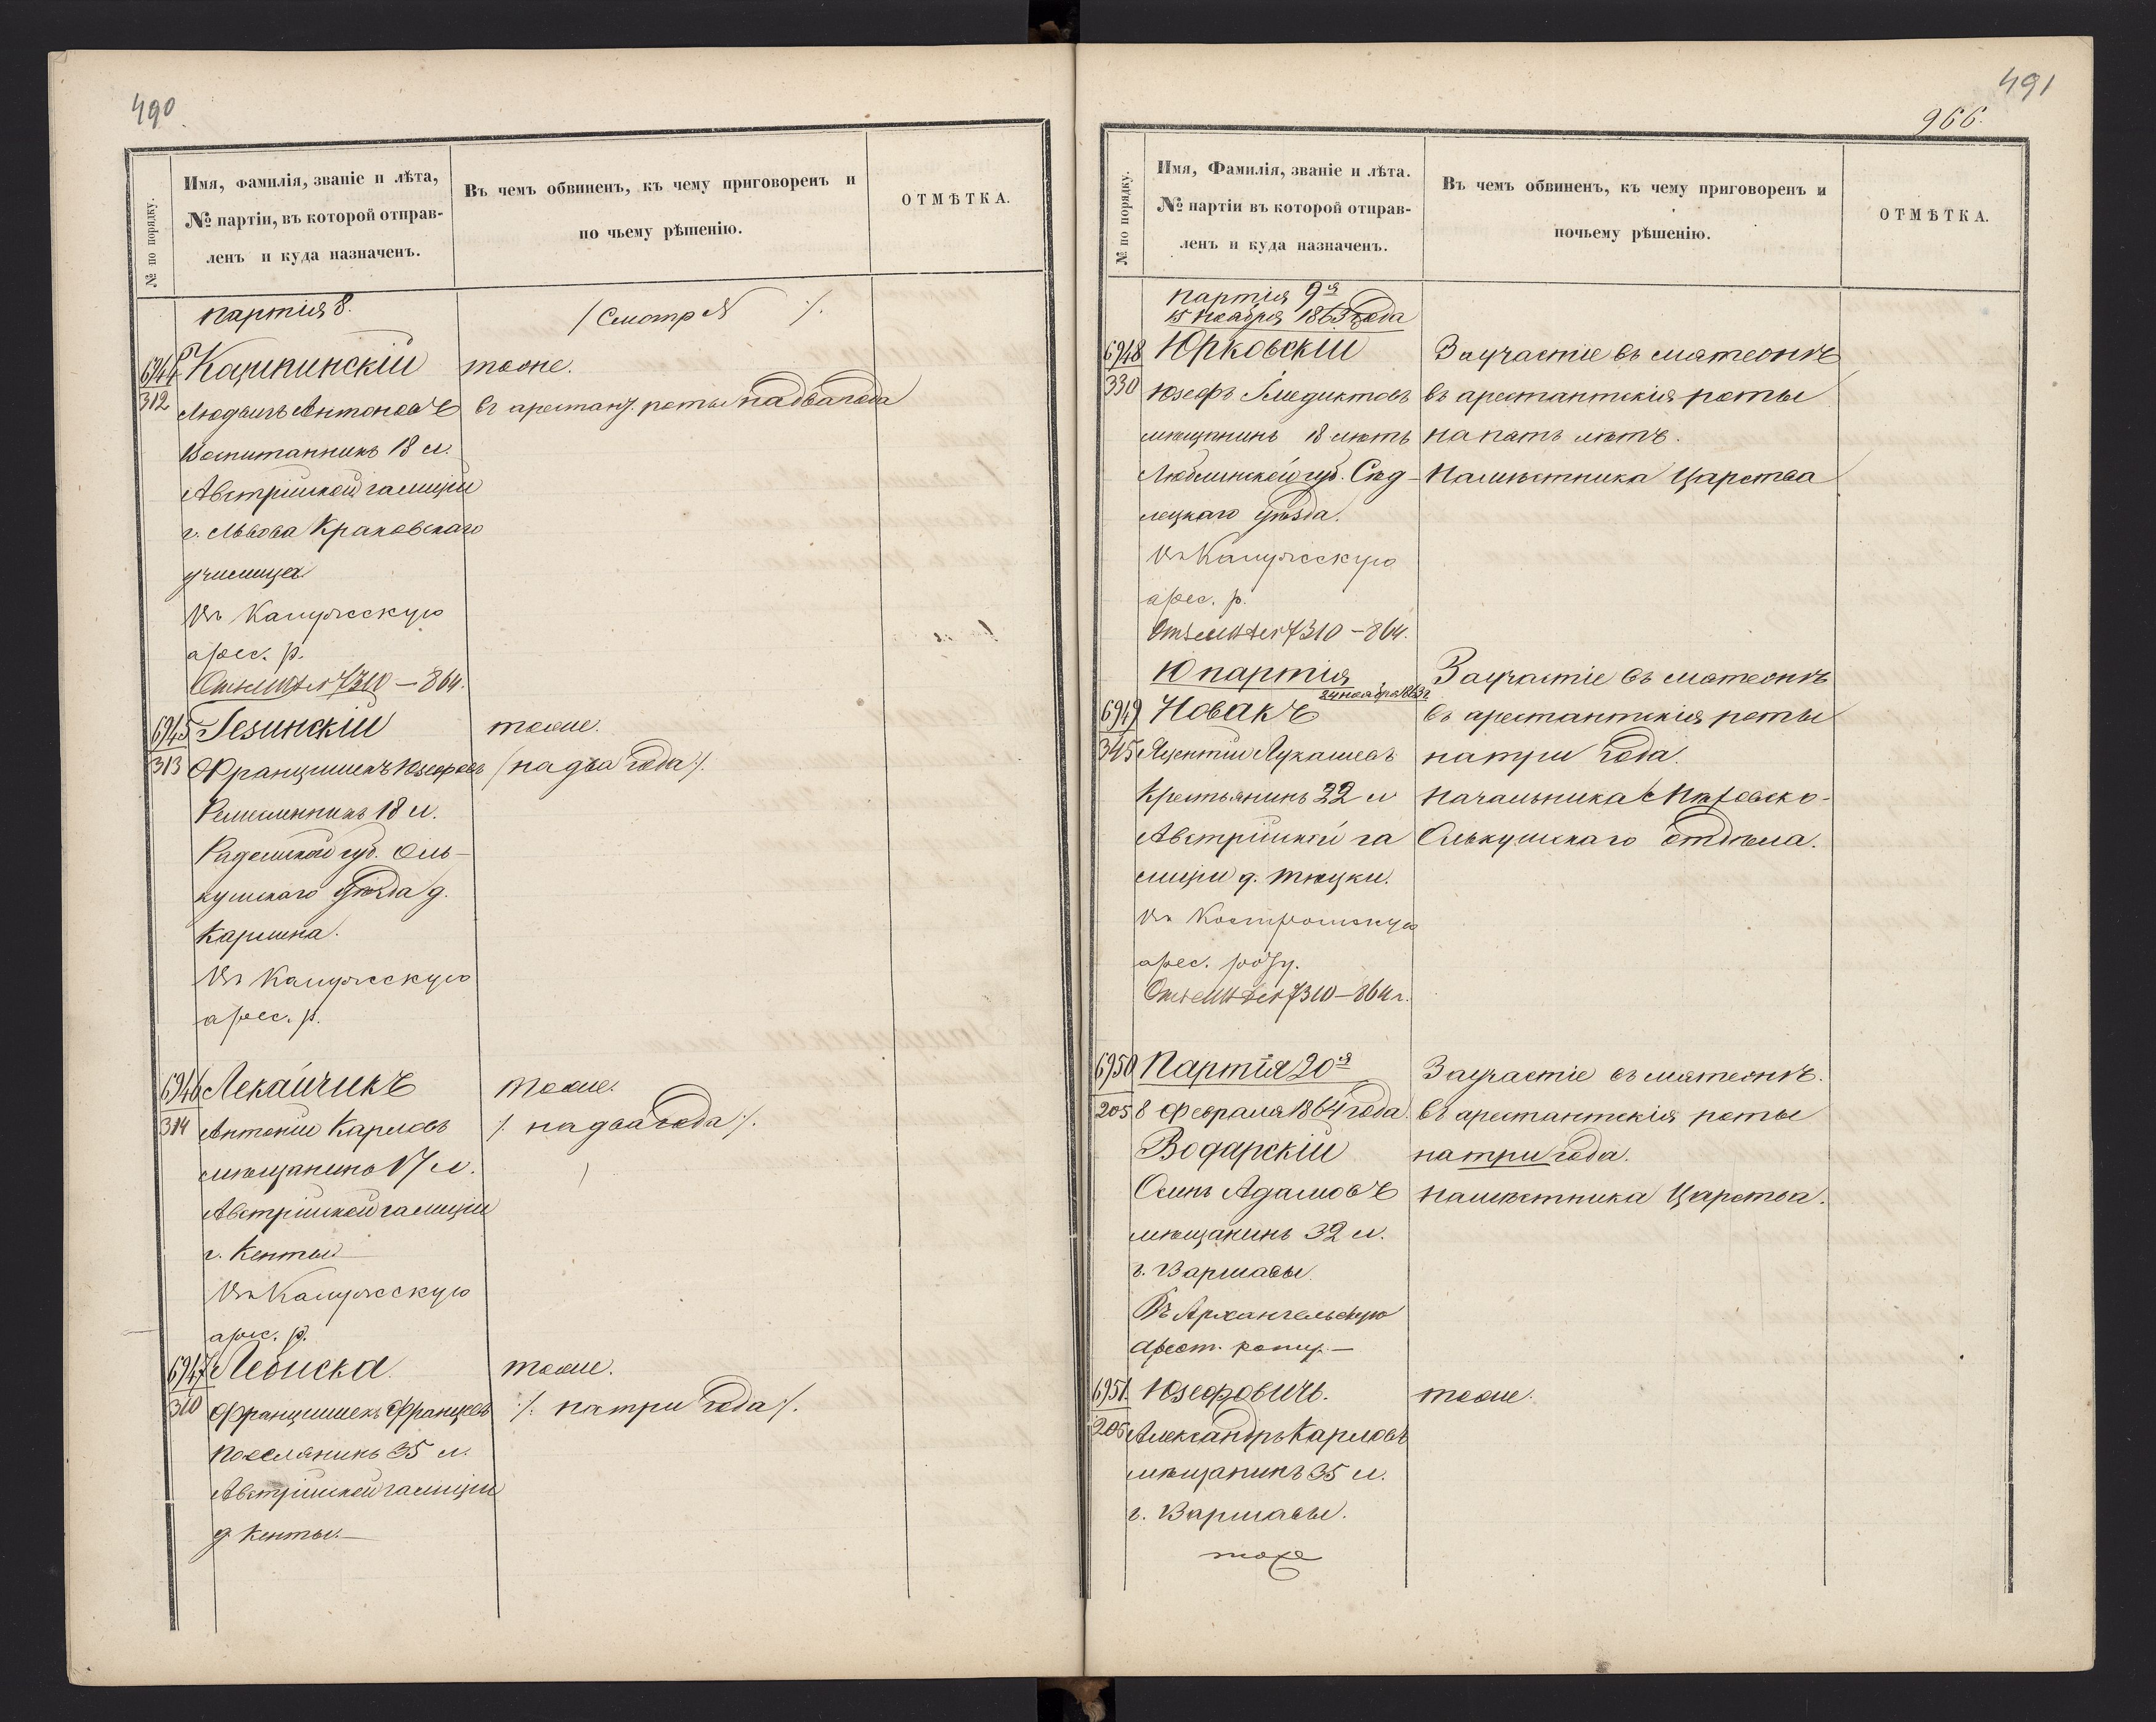 490
№ по порядку.
Имя, фамилія, званіе и лѣта,
№ партіи, въ которой отправ-
ленъ и куда назначенъ.
Въ чемъ обвиненъ, къ чему приговоренъ и
по чьему рѣшенію.
ОТМѢТКА.
партія 8.
/ Смотр №  /.
6944 Кашпинскій
тоже.
312 Людвигъ Антоновъ
въ арестант. роты на два года
Воспитанникъ 18 л.
Австрійской галиціи
г. Львова Краковскаго
училища
Въ Калужскую
арес. р.
7310 — 864.
6945 Гезинскій
тоже.
313 Францишекъ Юзефовъ
/ на два года /.
Ремесленникъ 18 л.
Радомской губ. Оль-
кушскаго уѣзда д.
Карлина.
Въ Калужскую
арес. р.
6946 Лекайчикъ
тоже.
314 Антоній Карловъ
/. на два года /.
мѣщанинъ 17 л.
Австрійской галиціи
г. Кенты
Въ Калужскую
арес. р.
6947 Лебиска.
тоже.
310 Францишекъ Францовъ
/. на три года /.
поселянинъ 35 л.
Австрійской галиціи
д. Кенты.—
491
966.
№ по порядку.
Имя, Фамилія, званіе и лѣта.
№ партіи въ которой отправ-
ленъ и куда назначенъ.
Въ чемъ обвиненъ, къ чему приговоренъ и
почьему рѣшенію.
ОТМѢТКА.
партія 9я
15 Ноября 1863 года
6948 Юрковскій
За участіе въ мятежѣ
330 Юзефъ Бенедиктовъ
въ арестантскія роты
мѣщанинъ 18 лѣтъ
на пять лѣтъ.
Люблинской губ. Сѣд-
Намѣстника Царства
лецкаго уѣзда.
Въ Калужскую
арес. р.
7310 — 864.
10 партія
24 ноября 1863 г.
За участіе въ мятежѣ
6949 Новакъ
въ арестантскія роты
345 Яцентій Лукашевъ
на три года.
Крестьянинъ 22 л
Начальника Мѣховско-
Австрійской га
Олькушскаго отдѣла.
лиціи д. Тлуцки.
Въ Костромскую
арес. роту.
7310 — 864 г.
6950 Партія 20я
За участіе въ мятежѣ.
205 8 Февраля 1864 года.
въ арестантскія роты
Водарскій
на три года.
Осипъ Адамовъ
намѣстника Царства.
мѣщанинъ 32 л.
г. Варшавы.
Въ Архангельскую
арест. роту.—
6951. Юзефовичъ.
тоже.
206 Александръ Карловъ
мѣщанинъ 35 л.
г. Варшавы.
тоже